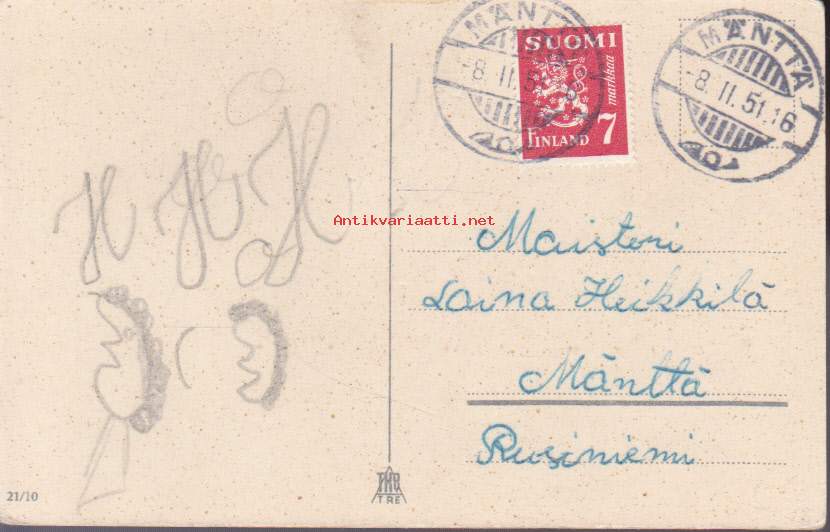 MÄNTTÄ
-8.II.51
SUOMI
markkaa
7
FINLAND
MÄNTTÄ
-8.II.51.16
H H H
Antikvariaatti.net
Maisteri
Laina Heikkilä
Mänttä
Rusiniemi
21/10
TKO
TRE